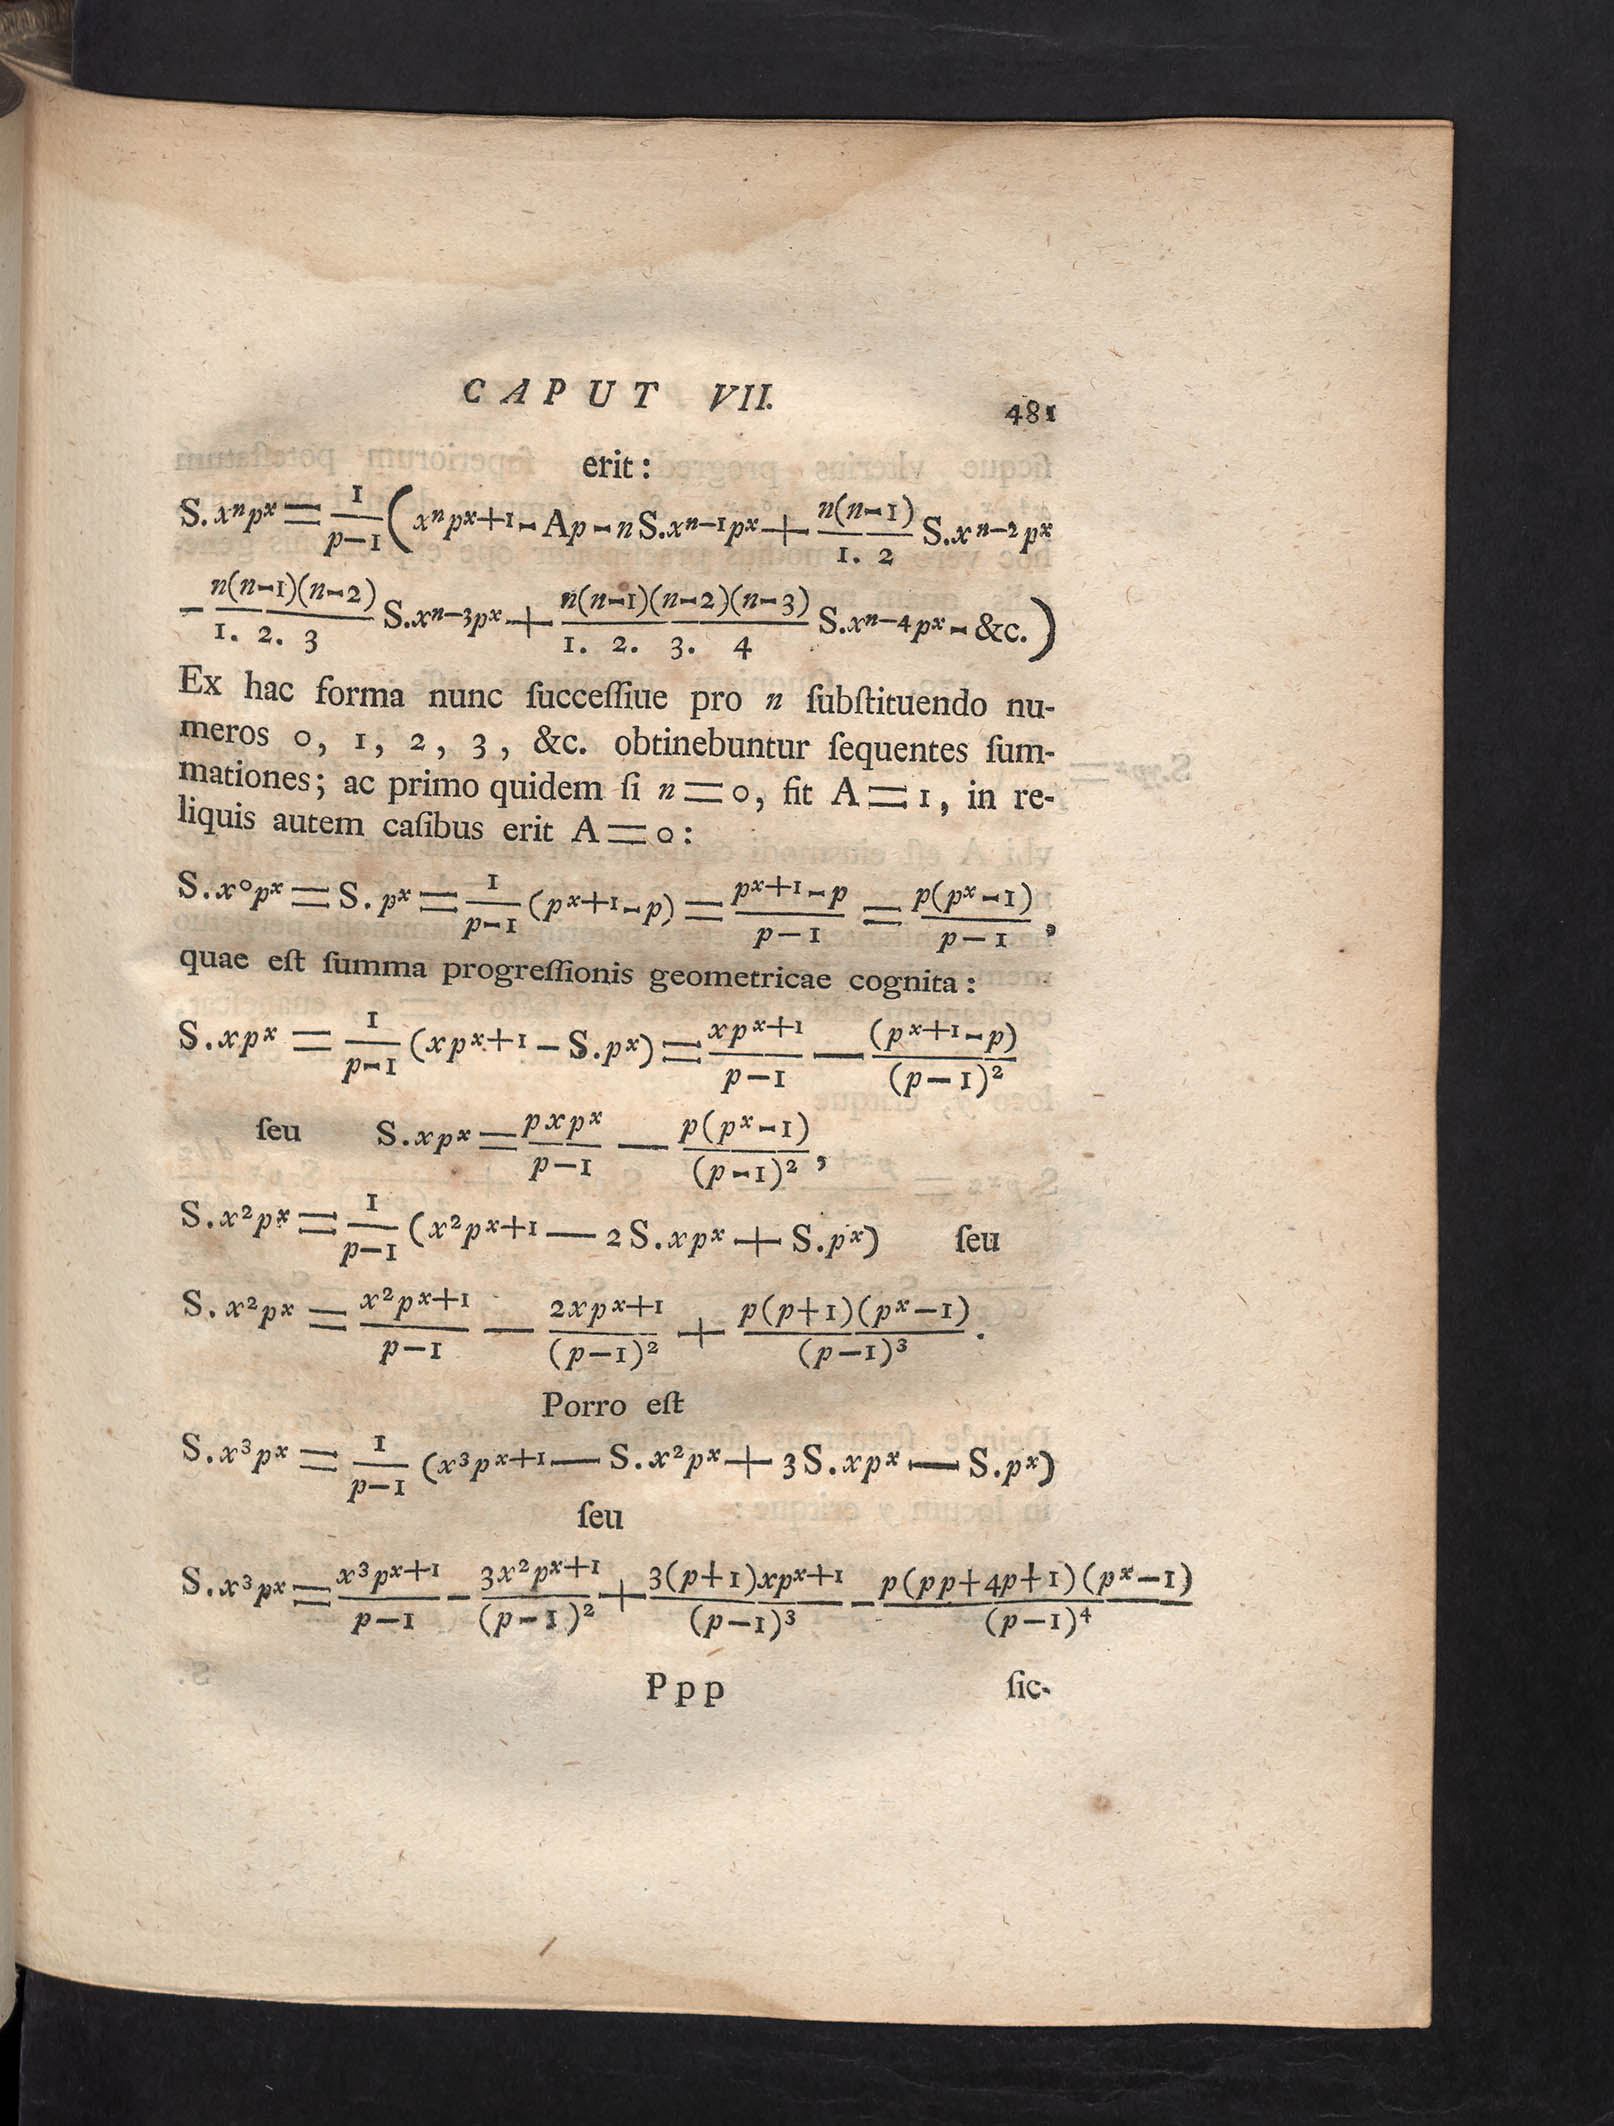 CAPUT VII. 481
erit:
S.xⁿpˣ = 1/(p-1) (xⁿpˣ⁺¹ - Ap - nS.xⁿ⁻¹pˣ + n(n-1)/(1. 2) S.xⁿ⁻²pˣ
- n(n-1)(n-2)/(1. 2. 3) S.xⁿ⁻³pˣ + n(n-1)(n-2)(n-3)/(1. 2. 3. 4) S.xⁿ⁻⁴pˣ - &c.)
Ex hac forma nunc ſucceſſiue pro n ſubſtituendo nu-
meros 0, 1, 2, 3, &c. obtinebuntur ſequentes ſum-
mationes; ac primo quidem ſi n = 0, fit A = 1, in re-
liquis autem caſibus erit A = 0:
S.x⁰pˣ = S.pˣ = 1/(p-1) (pˣ⁺¹ - p) = (pˣ⁺¹ - p)/(p-1) = p(pˣ - 1)/(p-1),
quae eſt ſumma progreſſionis geometricae cognita:
S.xpˣ = 1/(p-1) (xpˣ⁺¹ - S.pˣ) = xpˣ⁺¹/(p-1) - (pˣ⁺¹ - p)/(p-1)²
ſeu S.xpˣ = pxpˣ/(p-1) - p(pˣ-1)/(p-1)²,
S.x²pˣ = 1/(p-1) (x²pˣ⁺¹ - 2S.xpˣ + S.pˣ) ſeu
S.x²pˣ = x²pˣ⁺¹/(p-1) - 2xpˣ⁺¹/(p-1)² + p(p+1)(pˣ-1)/(p-1)³.
Porro eſt
S.x³pˣ = 1/(p-1) (x³pˣ⁺¹ - S.x²pˣ + 3S.xpˣ - S.pˣ)
ſeu
S.x³pˣ = x³pˣ⁺¹/(p-1) - 3x²pˣ⁺¹/(p-1)² + 3(p+1)xpˣ⁺¹/(p-1)³ - p(pp+4p+1)(pˣ-1)/(p-1)⁴
Ppp ſic-